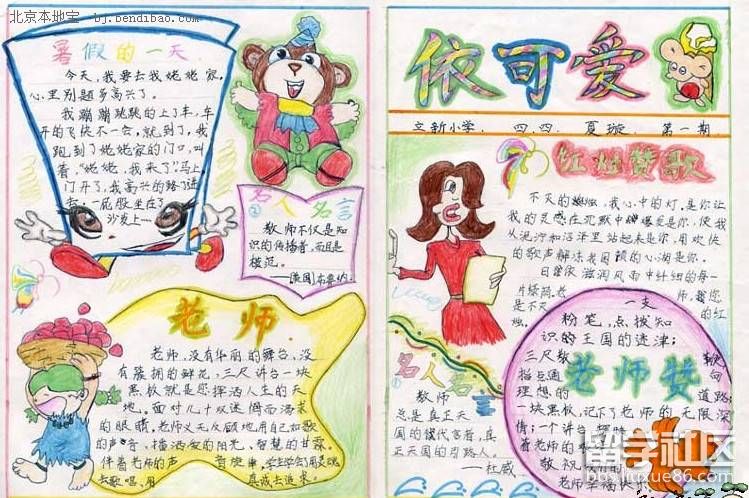 北京本地宝 - bj.bendibao.com
暑假的一天
今天,我要去我姥姥家,
心里别题多高兴了。
我蹦蹦跳跳的上了车,车
开的飞快不一会,就到了,我
跑到了姥姥家的门口,叫
着:“姥姥,我来了”.马上
门开了,我高兴的
去,一屁股坐在了
沙发上……
名人名言
②
教师不仅是知
识的传播者,而且是
模范。
老师
老师,没有华丽的舞台,没
有簇拥的鲜花,三尺讲台一块
黑板就是您挥洒人生的天
地。面对几十双迷惘而渴求
的眼睛,老师义无反顾地用自己如歌
的声音,播洒爱的阳光、智慧的甘霖。
伴着老师的声
去歌唱、用 真诚去追求。
依可爱
立新小学. 四.四. 夏璇. 第一期
红烛赞歌
不灭的 ,我心中的灯,是你让
我的灵感在沉默中爆发是你,使我
从泥泞和沼泽里站起来是你,用欢快
的歌声解冻我困顿的心涧是你.
日曾依 滋润风雨中纤细的每一
片绿简.老 师,我您
是不灭 一支 的红
烛。
名人名言
①
教师
总是真正天
国的代言者,真
正天国的引路人。
——杜威
老师赞
粉笔,点拨知
识的王国的迷津;
三尺教鞭
指点通向
理想的道路;
一块黑板,记下了老师的无限深
情;一个讲台,辉映
着老师的
敬祝
老师幸福快乐
留学社区
bbs.liuxue86.com